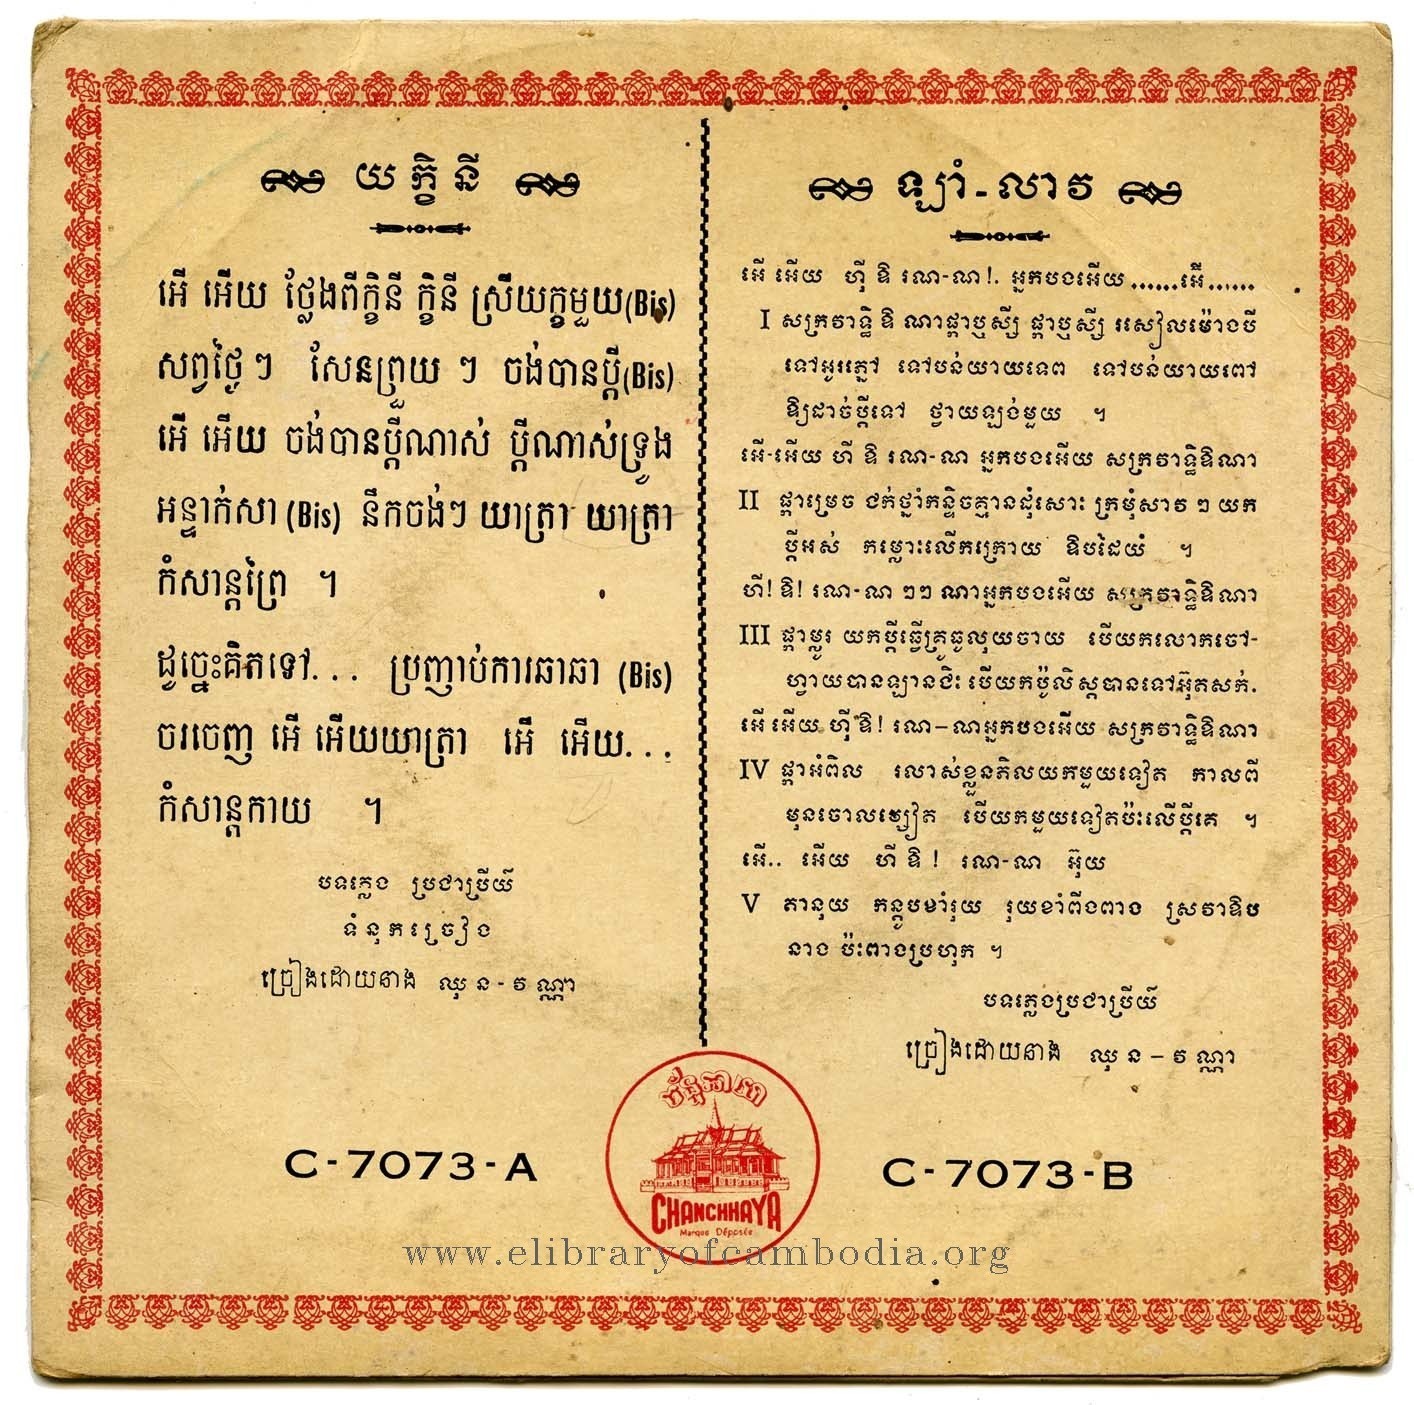 យក្ខិនី
អើ អើយ ថ្លែងពីក្ខិនី ក្ខិនី ស្រីយក្ខមួយ(Bis)
សព្វថ្ងៃៗ សែនព្រួយ ៗ ចង់បានប្ដី(Bis)
អើ អើយ ចង់បានប្ដីណាស់ ប្ដីណាស់ទ្រូង
អន្ទាក់សា (Bis) នឹកចង់ៗ យាត្រា យាត្រា
កំសាន្តព្រៃ ។
ដូច្នេះគិតទៅ... ប្រញាប់ការឆាឆា (Bis)
ចរចេញ អើ អើយយាត្រា អើ អើយ...
កំសាន្តកាយ ។
បទភ្លេង ប្រជាប្រីយ៍
ទំនុកច្រៀង
ច្រៀងដោយនាង ឈុន-វណ្ណា
C-7073-A
ឡាំ-លាវ
អើ អើយ ហ៊ី ឱ រណ-ណ!. អ្នកបងអើយ ......អើ......
I សក្រវាទ្ធិ ឱ ណាផ្កាឬស្សី ផ្កាឬស្សី រសៀលម៉ោងបី
ទៅអូរភ្នៅ ទៅបន់យាយទេព ទៅបន់យាយពៅ
ឱ្យដាច់ប្ដីទៅ ថ្វាយឡង់មួយ ។
អើ-អើយ ហី ឱ រណ-ណ អ្នកបងអើយ សក្រវាទ្ធិឱណា
II ផ្កាម្រេច ជក់ថ្នាំកន្ទិចគ្មានដុំសោះ ក្រមុំសាវ ៗ យក
ប្ដីអស់ កម្លោះលើកក្រោយ ឱបដៃយំ ។
ហី! ឱ! រណ-ណ ៗៗ ណាអ្នកបងអើយ សក្រវាទ្ធិឱណា
III ផ្កាម្លូរ យកប្ដីធ្វើគ្រូធូលុយចាយ បើយកលោកចៅ-
ហ្វាយបានឡានជិះ បើយកប៉ូលិស្តបានទៅអ៊ុតសក់.
អើ អើយ ហ៊ី ឱ! រណ-ណអ្នកបងអើយ សក្រវាទ្ធិឱណា
IV ផ្កាអំពិល រលាស់ខ្លួនតិលយកមួយទៀត កាលពី
មុនចោលវៀត បើយកមួយទៀតប៉ះលើប្ដីគេ ។
អើ.. អើយ ហី ឱ ! រណ-ណ អ៊ុយ
V តានុយ កន្តូបមាំរុយ រុយខាំពីងពាង ស្រវាឱប
នាង ប៉ះពាងប្រហុក ។
បទភ្លេងប្រជាប្រីយ៍
ច្រៀងដោយនាង ឈុន-វណ្ណា
C-7073-B
ច័ន្ទឆាយា
CHANCHHAYA
Marque Déposée
www.elibraryofcambodia.org